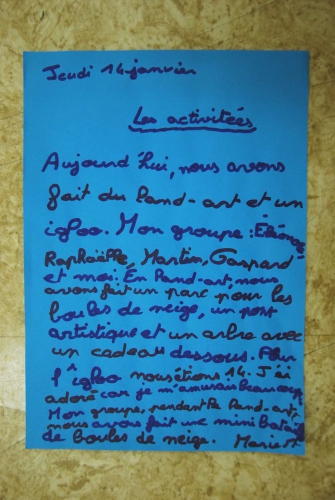 Jeudi 14 janvier
Les activitées
Aujourd'hui, nous avons
fait du Land-art et un
igloo. Mon groupe : Éléonore
Raphaëlle, Martin, Gaspard
et moi. En Land-art, nous
avons fait un parc pour les
boules de neige, un pont
artistique et un arbre avec
un cadeau dessous. Pour
l'igloo nous étions 14. J'ai
adoré car je m'amusais beaucoup.
Mon groupe, pendant le Land-art,
nous avons fait une mini bataille
de boules de neige. Marie M.